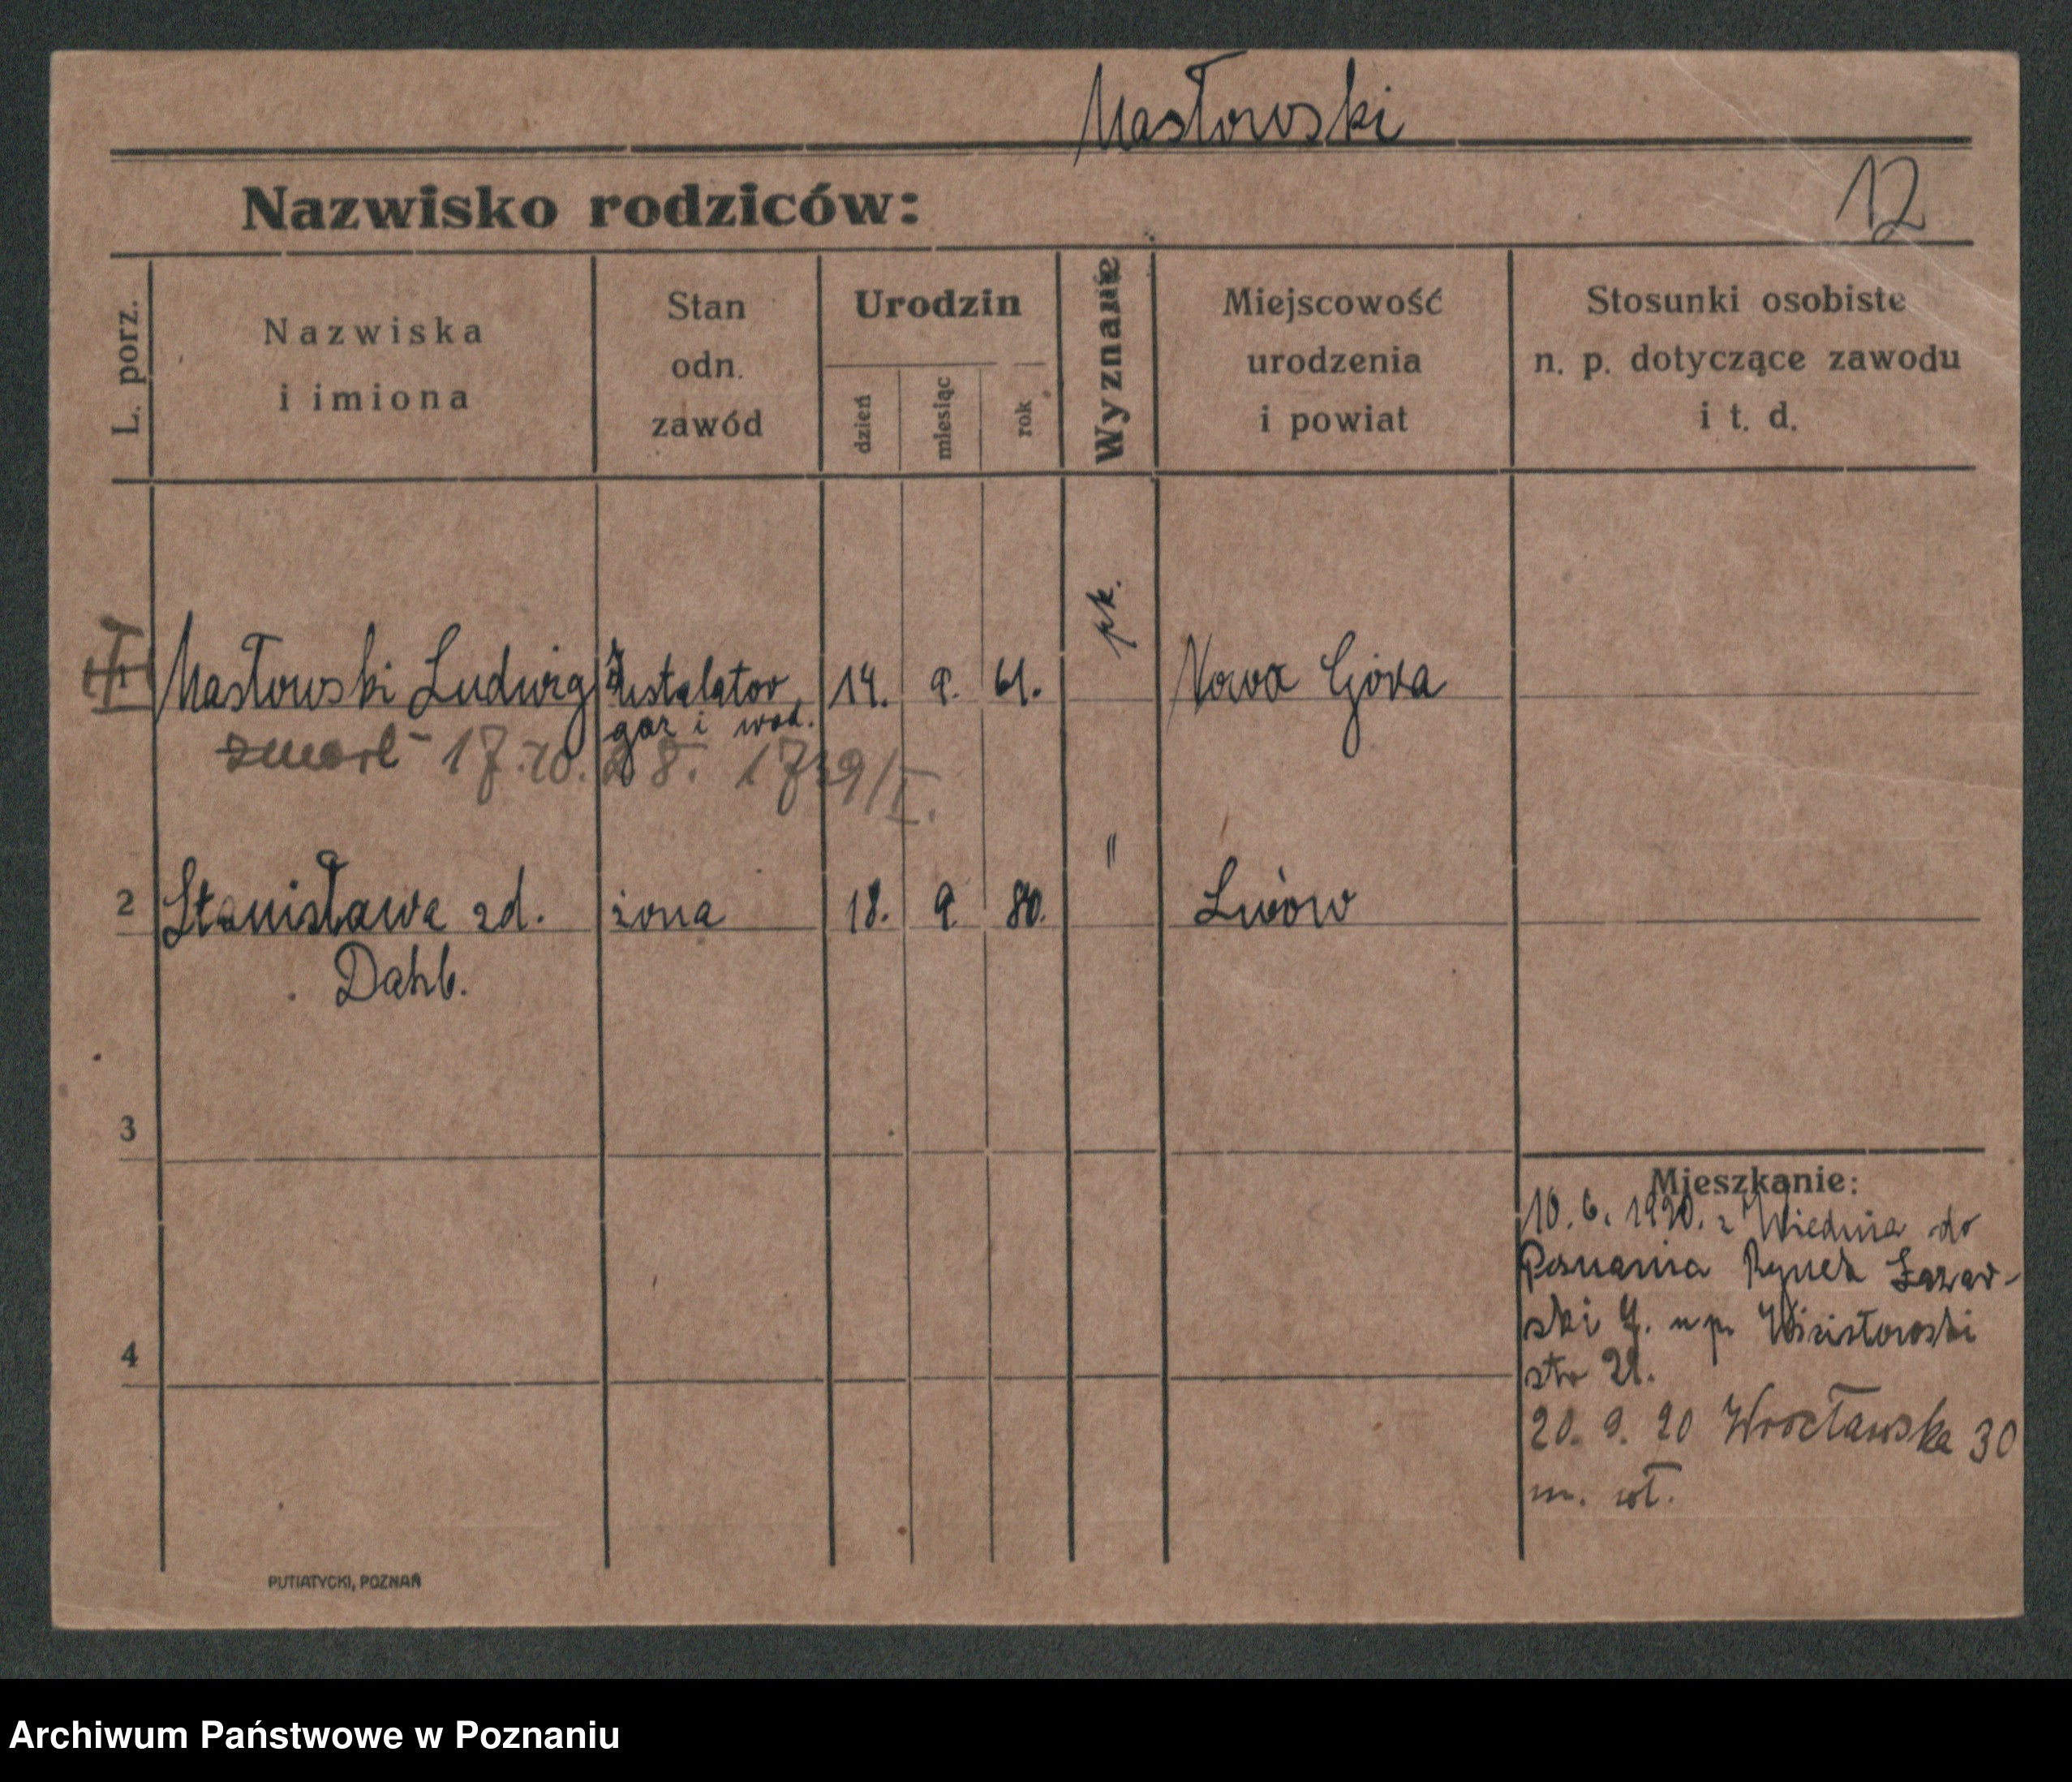 Masłowski
12
Nazwisko rodziców:
L. porz.
Nazwiska
i imiona
Stan
odn.
zawód
Urodzin
dzień
miesiąc
rok
Wyznanie
Miejscowość
urodzenia
i powiat
Stosunki osobiste
n. p. dotyczące zawodu
i t. d.
Masłowski Ludwig Instalator 14. 9. 61. rk. Nowa Góra
gaz i wod.
zmarł 17.10.28. 1739/I.
2 Stanisława zd. żona 18. 9. 80. " Lwów
Dahb.
3
4
Mieszkanie:
10. 6. 1920. z Wiednia do
Poznania Rynek Łazar-
ski 7. u p.
str 21.
20. 9. 20 Wrocławska 30
m. wł.
PUTIATYCKI, POZNAŃ
Archiwum Państwowe w Poznaniu